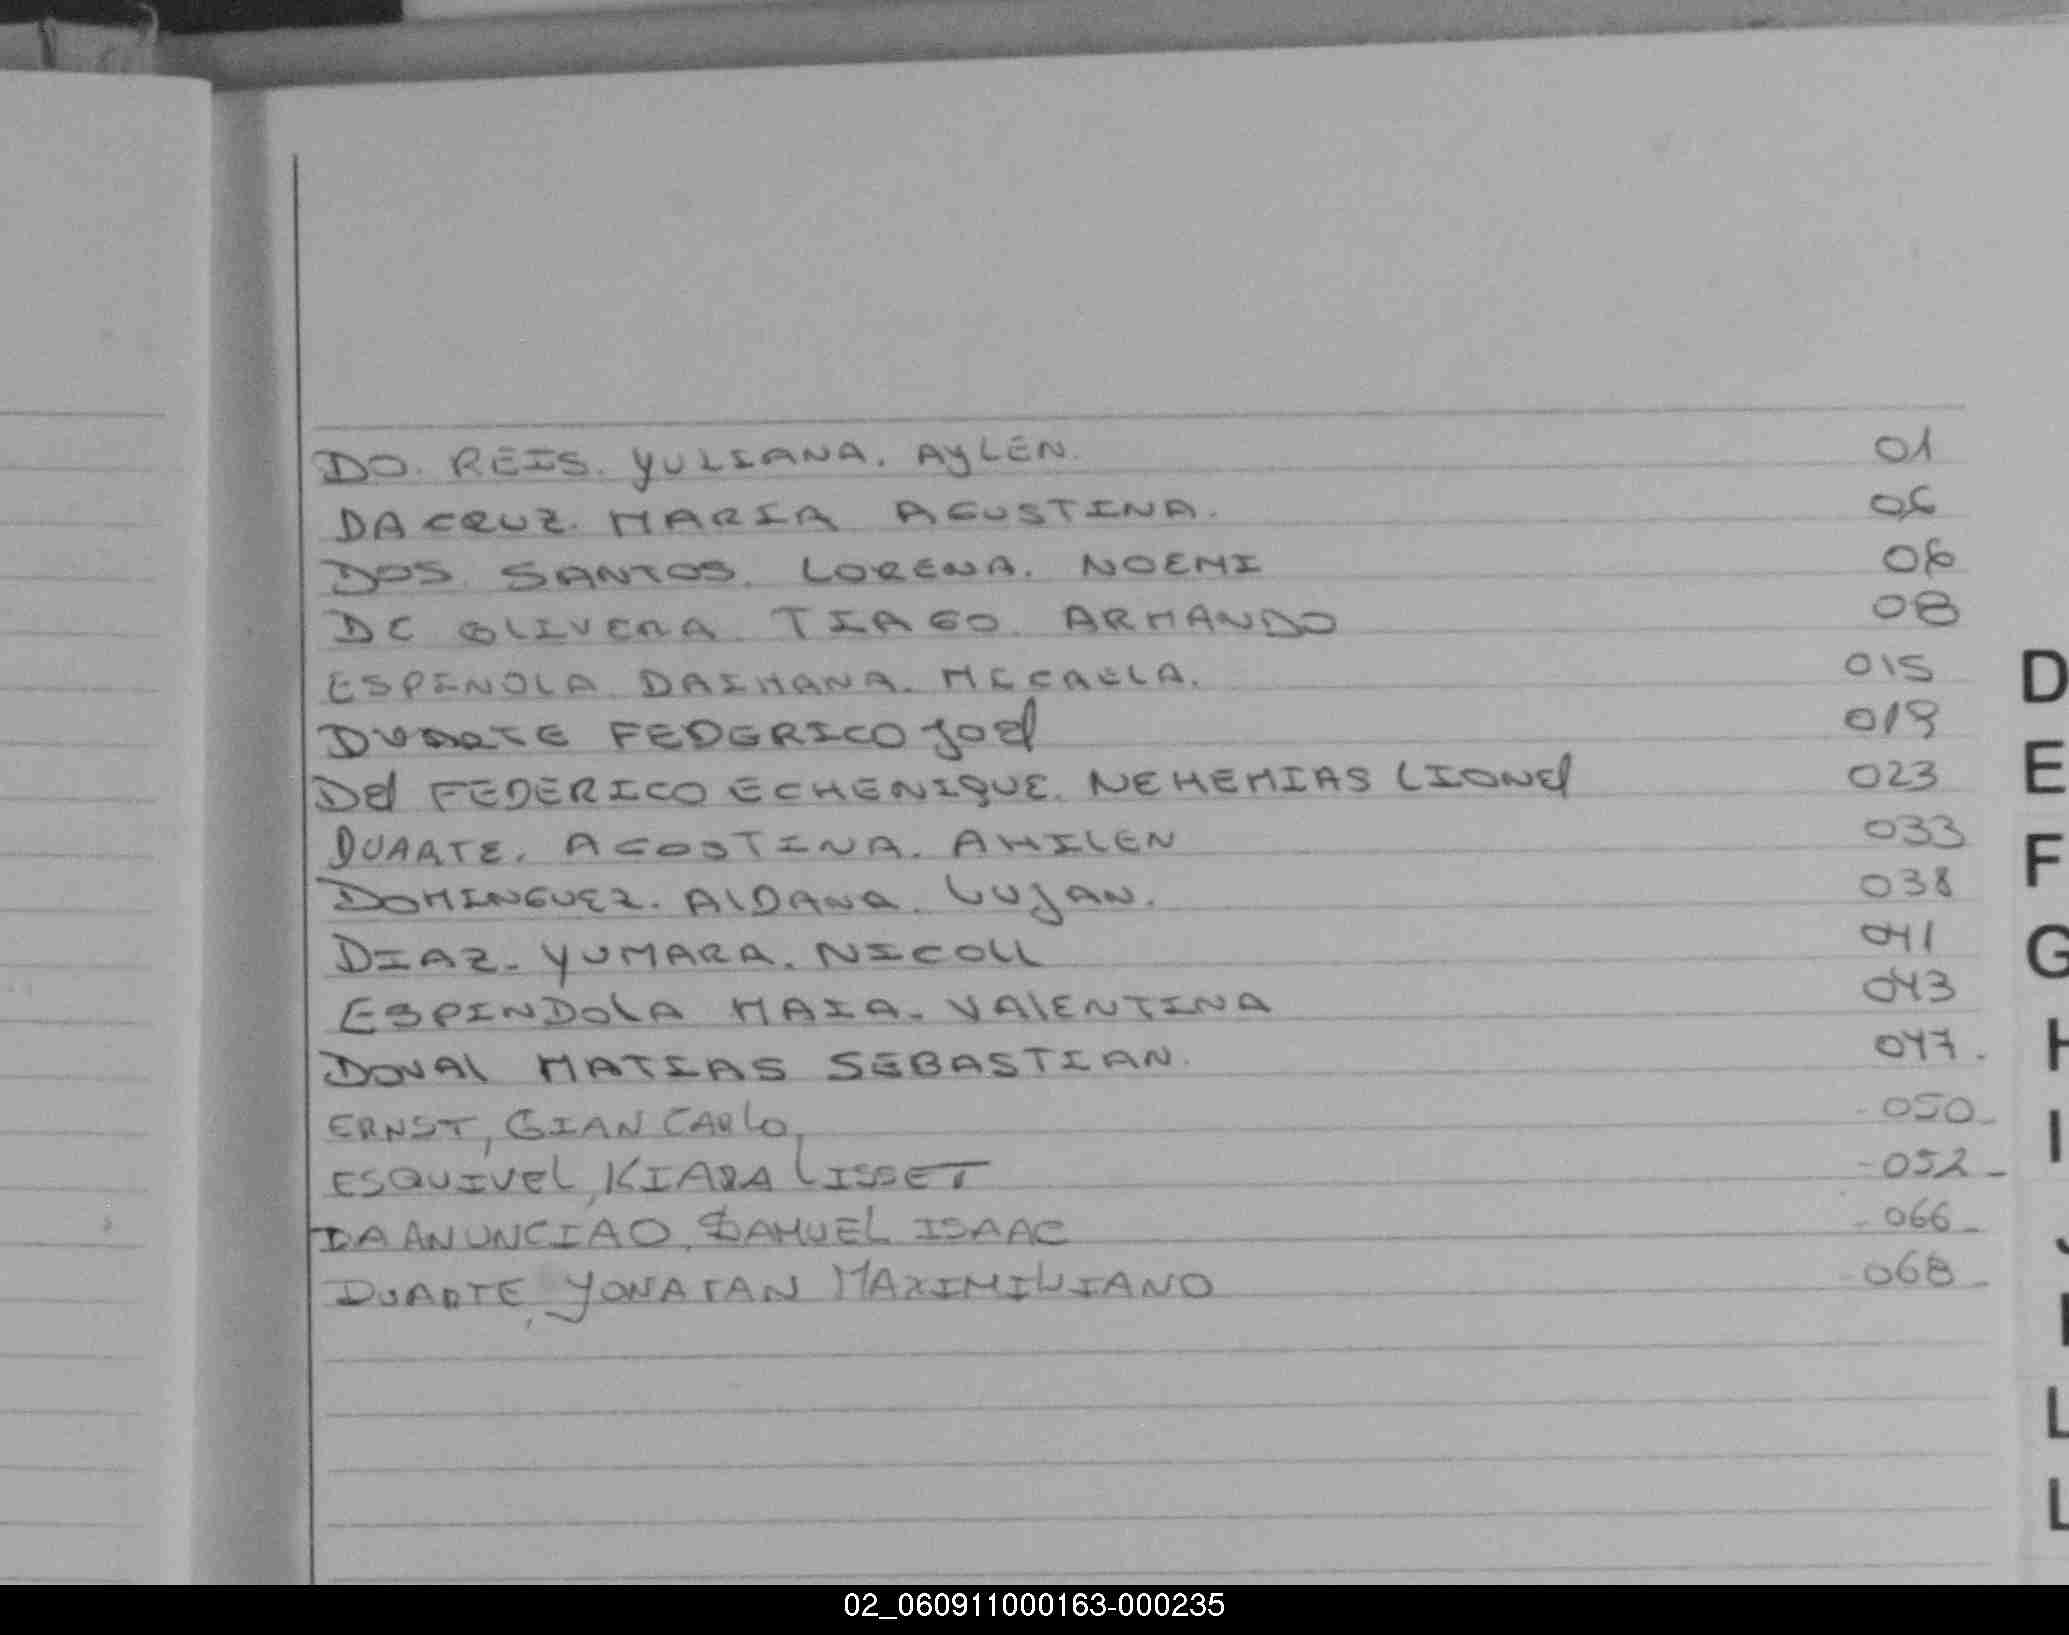 DO. REIS. YULIANA. AYLEN. 01
DA CRUZ. MARIA AGUSTINA. 06
DOS SANTOS. LORENA. NOEMI 06
DE OLIVERA. TIAGO. ARMANDO 08
ESPINOLA DAIMANA. MICAELA. 015
DUARTE FEDERICO JOEL 019
Del FEDERICO ECHENIQUE. NEHEMIAS LIONEL 023
DUARTE. AGOSTINA. AHILEN 033
DOMINGUEZ. AlDANA. LUJAN. 038
DIAZ. YUMARA. NICOLL 041
ESPINDOLA MAIA. VALENTINA 043
DOVAL MATIAS SEBASTIAN. 047.
ERNST, GIAN CARLO, - 050 -
ESQUIVEL, KIARA LISSET - 052 -
DA ANUNCIAO, SAMUEL ISAAC - 066 -
DUARTE, YONATAN MAXIMILIANO - 068 -
D
E
F
G
H
I
J
L
L
02_060911000163-000235